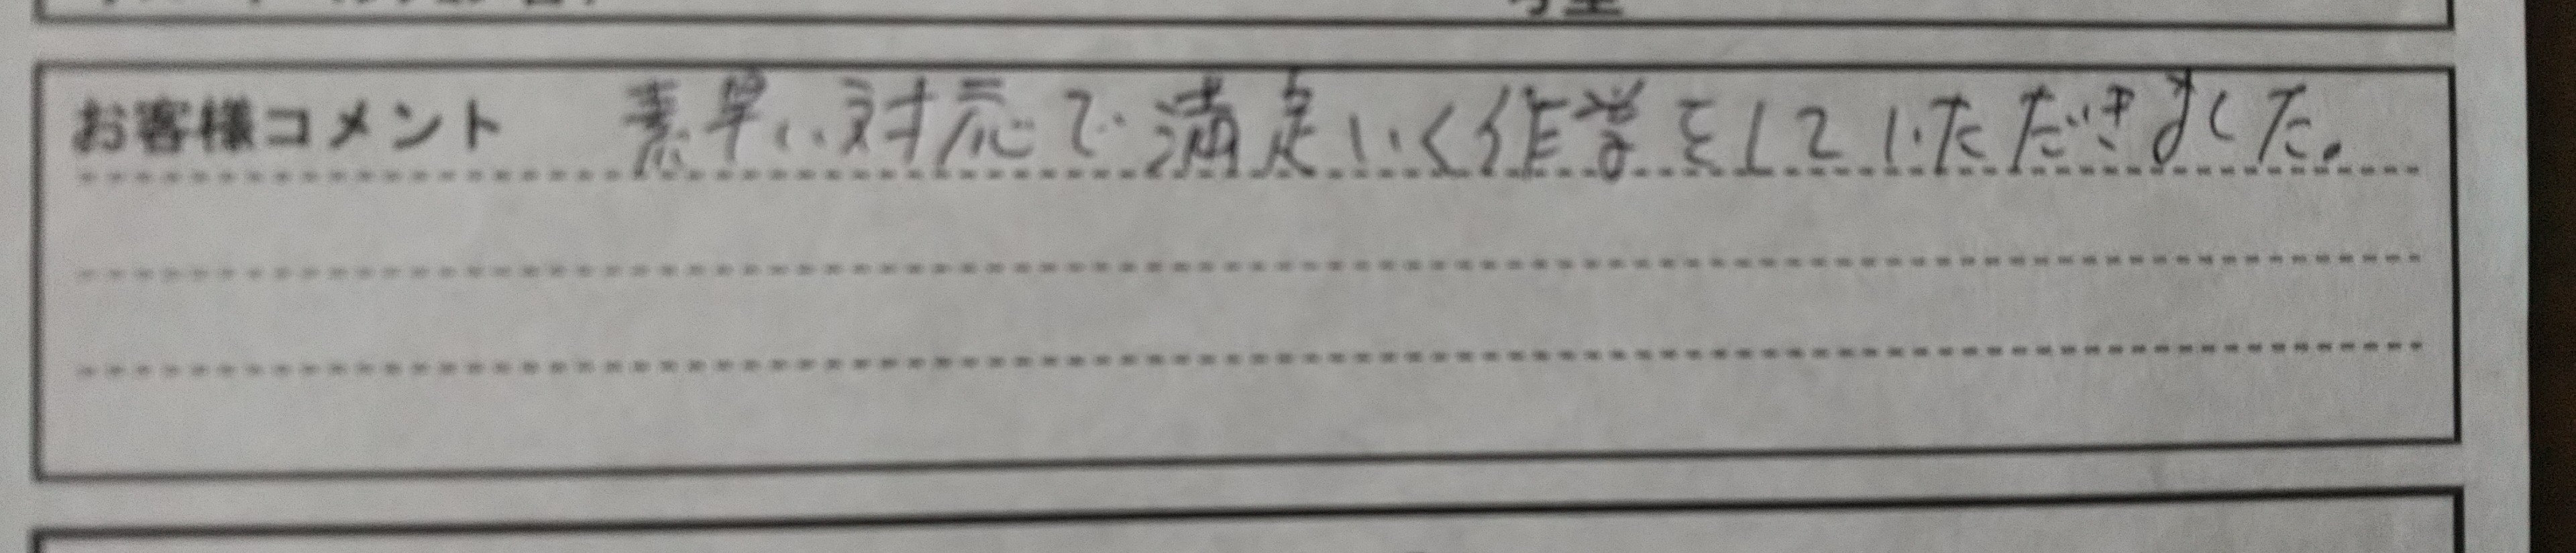 お客様コメント 素早い対応で満足いく作業をしていただきました。